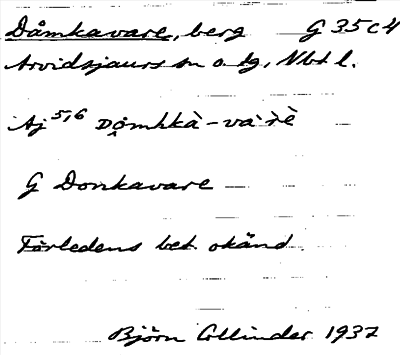 Dåmkavare, berg G 35 c 4
Arvidsjaurs sn o tg, Nbt l.
Aj 5,6 Dǫmhkà-và'rè
G Donkavare
Förledens bet. okänd.
Björn Collinder 1937